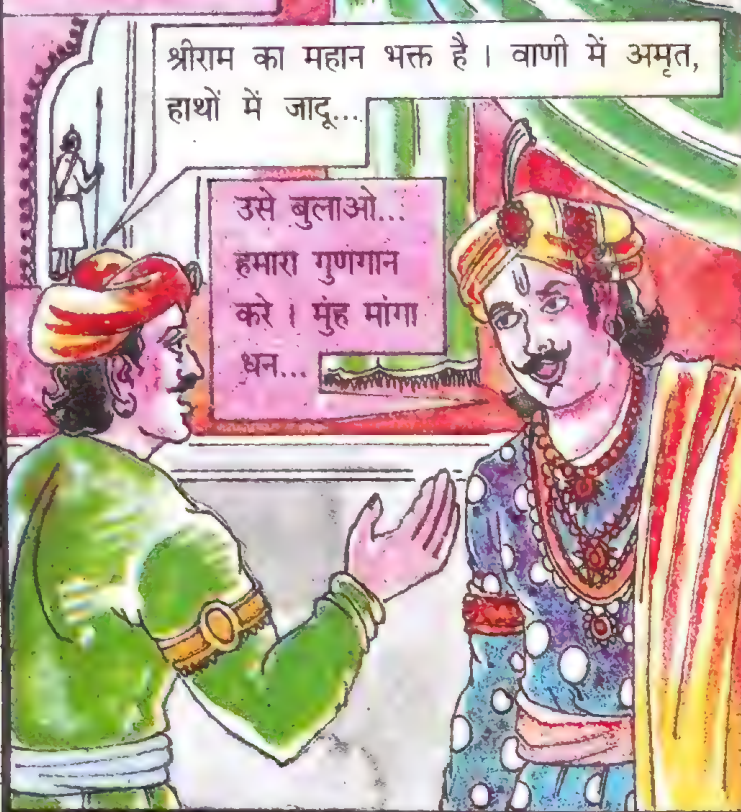 श्रीराम का महान भक्त है । वाणी में अमृत,
हाथों में जादू...
उसे बुलाओ...
हमारा गुणगान
करे । मुंह मांगा
धन...